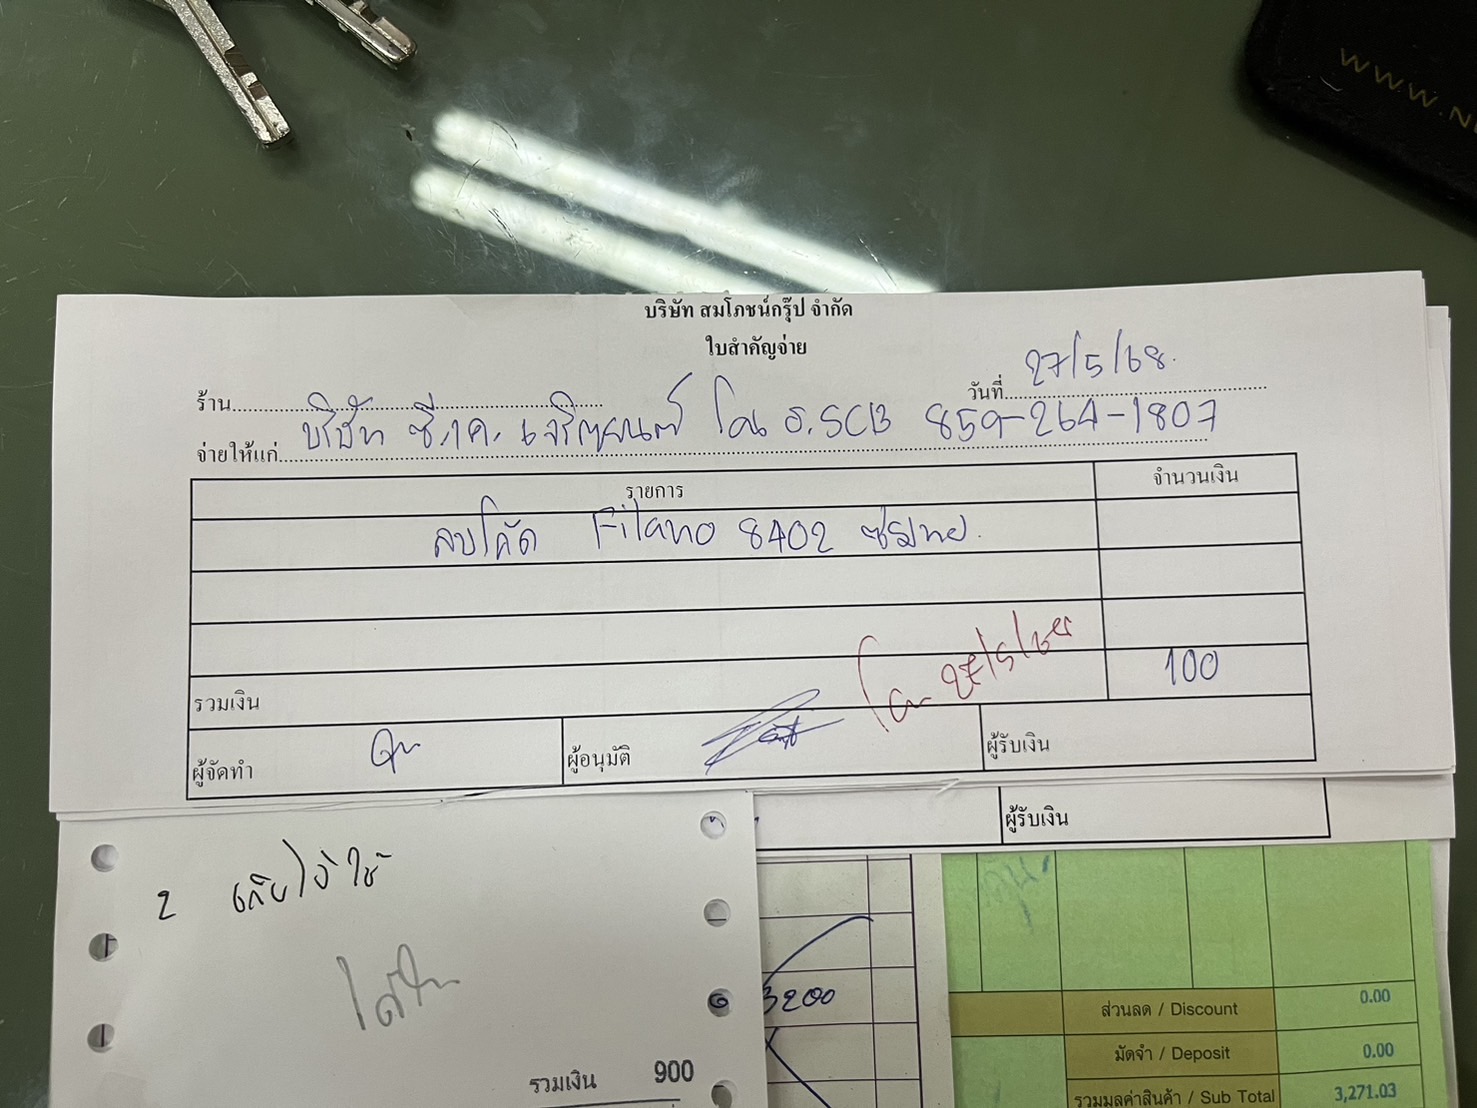 WWW.N
บริษัท สมโภชน์กรุ๊ป จำกัด
ใบสำคัญจ่าย
ร้าน
วันที่ 27/5/68.
จ่ายให้แก่ บริษัท ซี.เค. เจริญยนต์ โอน ธ.SCB 859-264-1807
รายการ จำนวนเงิน
ลบโค๊ด Filano 8402
โอน 27/5/68
รวมเงิน 100
ผู้จัดทำ
ผู้อนุมัติ
ผู้รับเงิน
ผู้รับเงิน
2 เก็บไว้ใช้
3200
ส่วนลด / Discount 0.00
มัดจำ / Deposit 0.00
รวมเงิน 900
รวมมูลค่าสินค้า / Sub Total 3,271.03